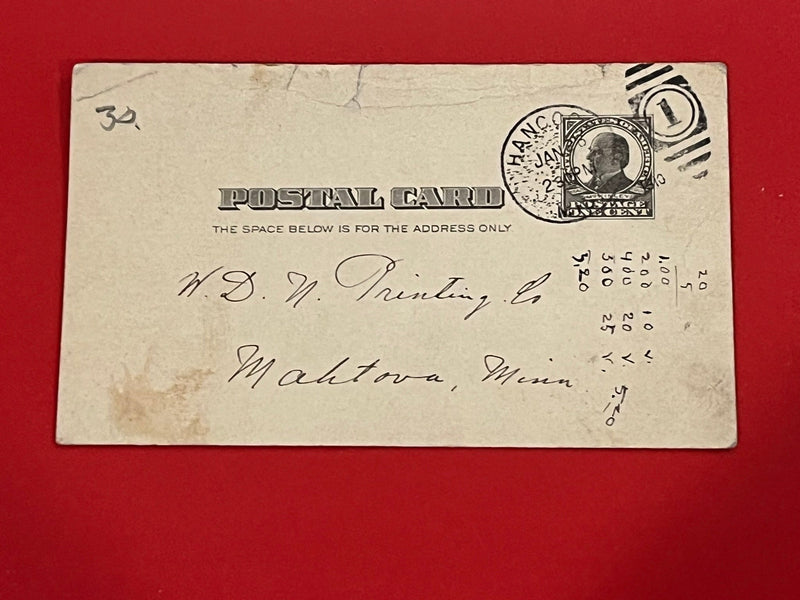 30.
HANCO
JAN
1
UNITED STATES OF AMERICA
POSTAGE
ONE CENT
POSTAL CARD
THE SPACE BELOW IS FOR THE ADDRESS ONLY.
W. D. N. Printing Co
Mahtova, Minn
20
5
1.00
200 10 v.
400 20 v. 5.20
500 25 v.
5.20